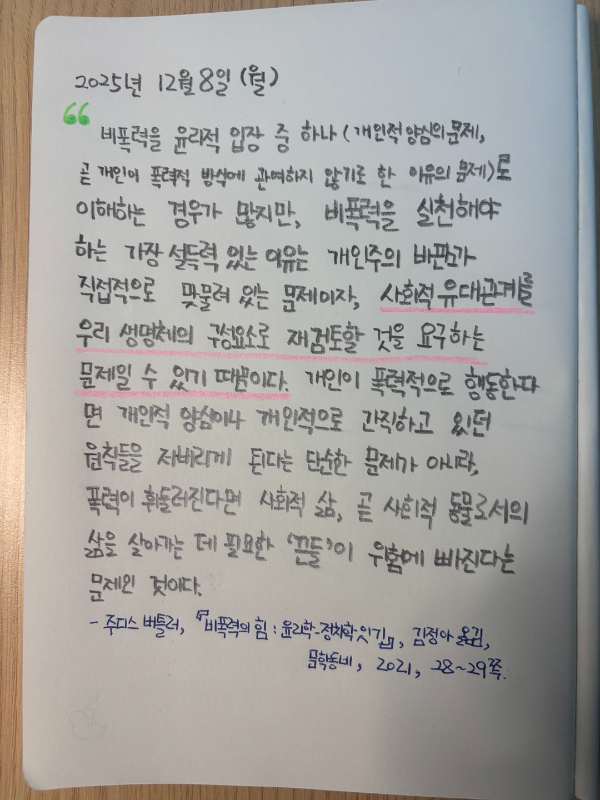 2025년 12월 8일 (월)
“
비폭력을 윤리적 입장 중 하나 (개인적 양심의 문제,
곧 개인이 폭력적 방식에 관여하지 않기로 한 이유의 문제)로
이해하는 경우가 많지만, 비폭력을 실천해야
하는 가장 설득력 있는 이유는 개인주의 비판과
직접적으로 맞물려 있는 문제이자, 사회적 유대관계를
우리 생명체의 구성요소로 재검토할 것을 요구하는
문제일 수 있기 때문이다. 개인이 폭력적으로 행동한다
면 개인적 양심이나 개인적으로 간직하고 있던
원칙들을 저버리게 된다는 단순한 문제가 아니라,
폭력이 휘둘러진다면 사회적 삶, 곧 사회적 동물로서의
삶을 살아가는 데 필요한 ‘끈들’이 위험에 빠진다는
문제인 것이다.
- 주디스 버틀러, 『비폭력의 힘 : 윤리학-정치학 잇기』, 김정아 옮김,
문학동네, 2021, 28~29쪽.